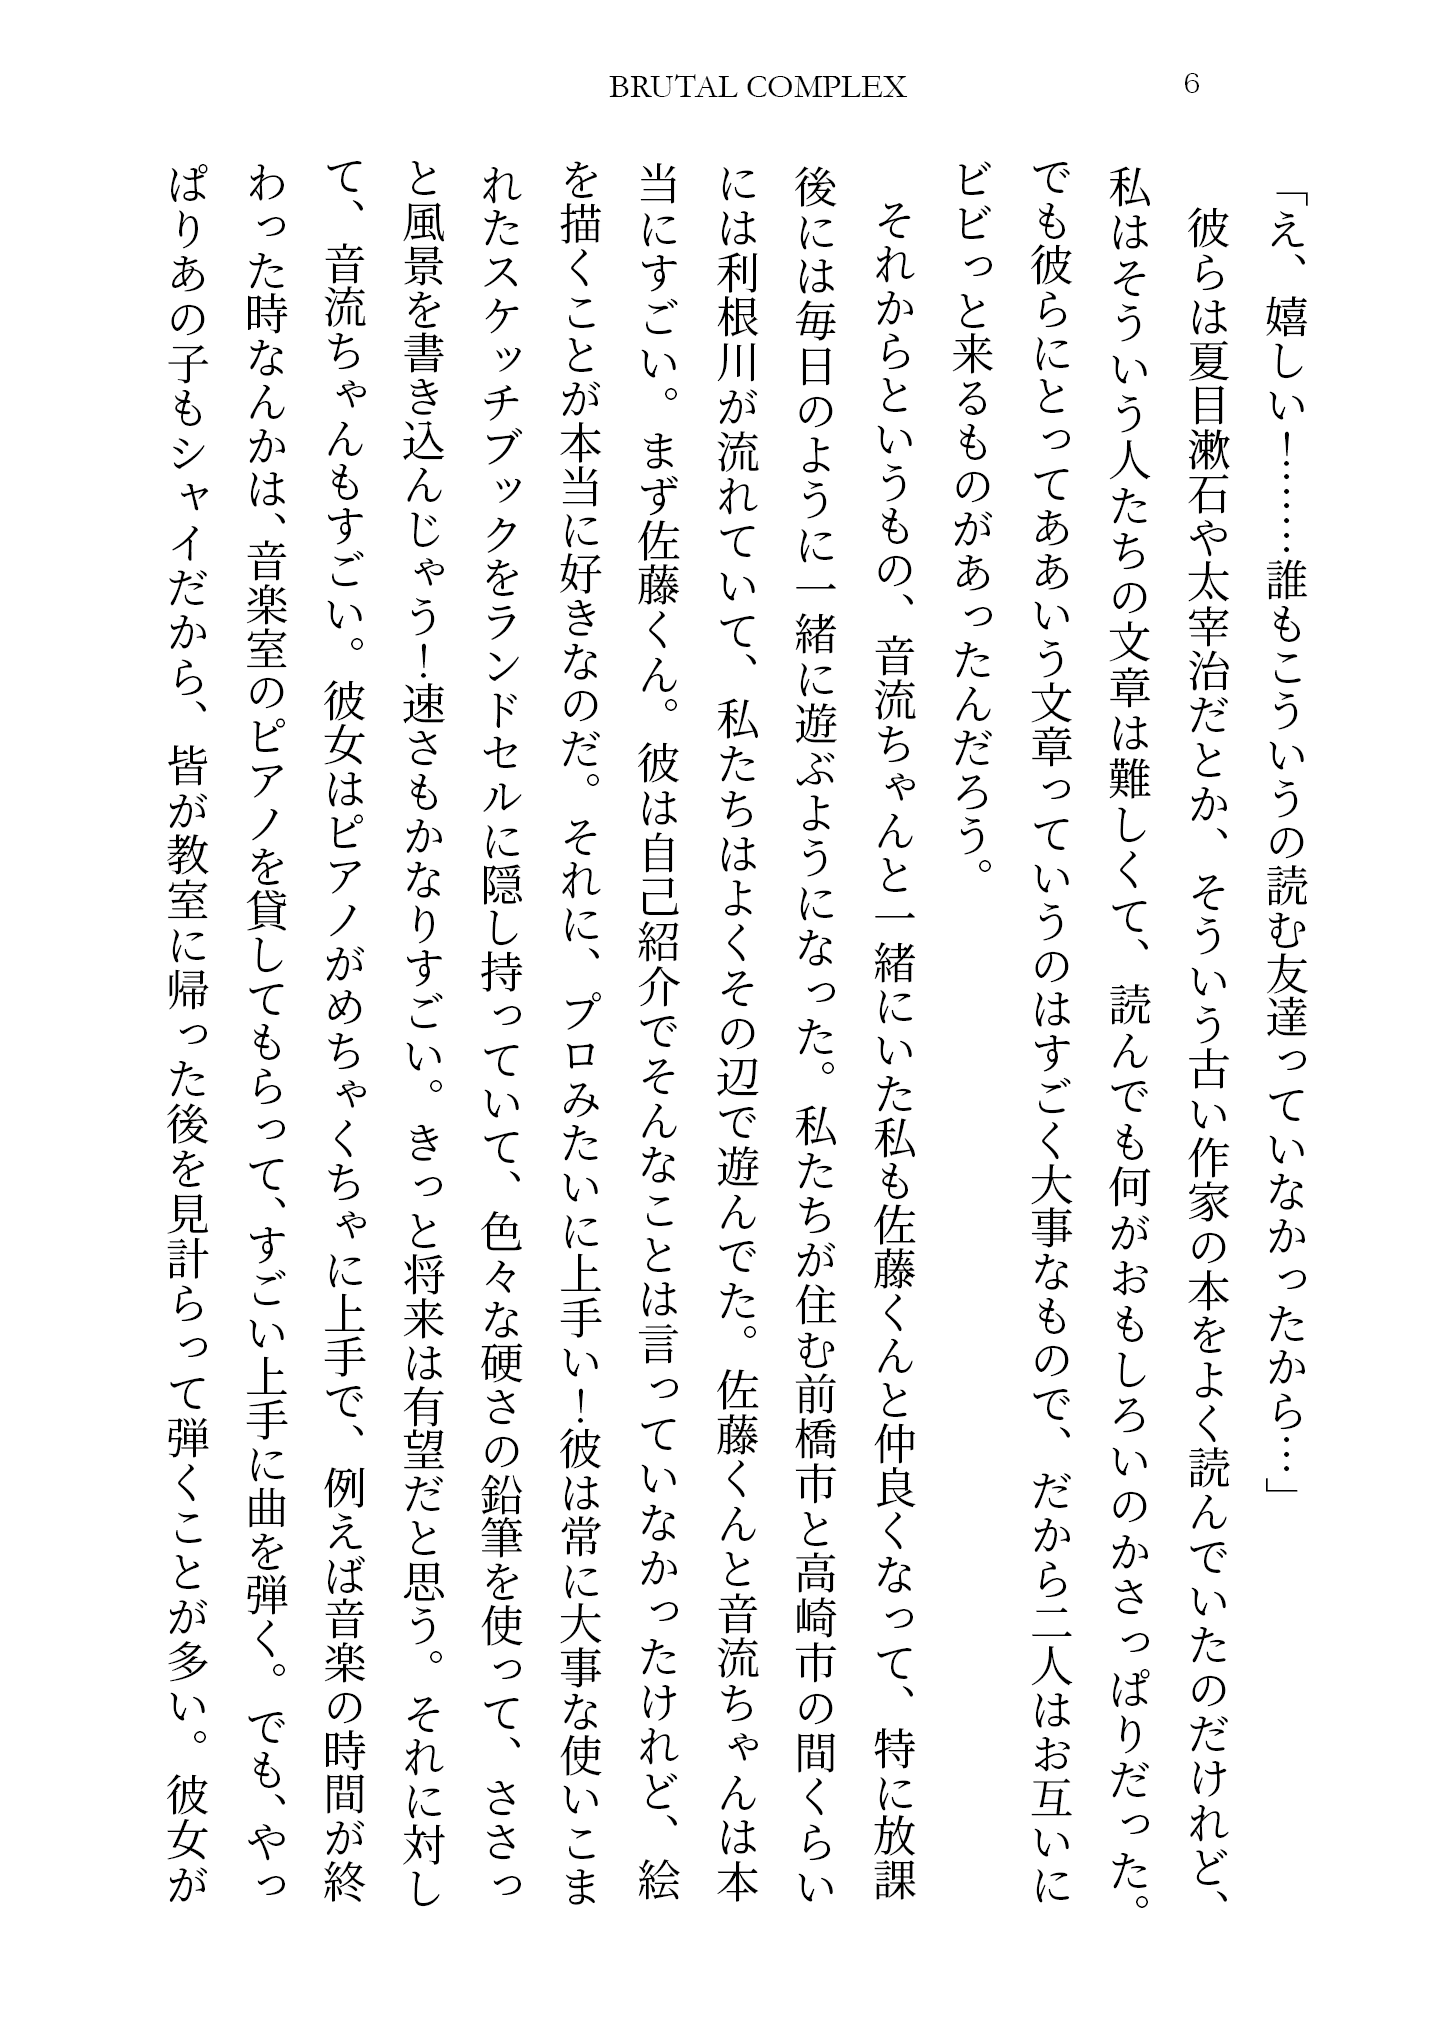 BRUTAL COMPLEX
6
「え、嬉しい！……誰もこういうの読む友達っていなかったから…」
彼らは夏目漱石や太宰治だとか、そういう古い作家の本をよく読んでいたのだけれど、
私はそういう人たちの文章は難しくて、読んでも何がおもしろいのかさっぱりだった。
でも彼らにとってああいう文章っていうのはすごく大事なもので、だから二人はお互いに
ビビっと来るものがあったんだろう。
それからというもの、音流ちゃんと一緒にいた私も佐藤くんと仲良くなって、特に放課
後には毎日のように一緒に遊ぶようになった。私たちが住む前橋市と高崎市の間くらい
には利根川が流れていて、私たちはよくその辺で遊んでた。佐藤くんと音流ちゃんは本
当にすごい。まず佐藤くん。彼は自己紹介でそんなことは言っていなかったけれど、絵
を描くことが本当に好きなのだ。それに、プロみたいに上手い！彼は常に大事な使いこま
れたスケッチブックをランドセルに隠し持っていて、色々な硬さの鉛筆を使って、ささっ
と風景を書き込んじゃう！速さもかなりすごい。きっと将来は有望だと思う。それに対し
て、音流ちゃんもすごい。彼女はピアノがめちゃくちゃに上手で、例えば音楽の時間が終
わった時なんかは、音楽室のピアノを貸してもらって、すごい上手に曲を弾く。でも、やっ
ぱりあの子もシャイだから、皆が教室に帰った後を見計らって弾くことが多い。彼女が